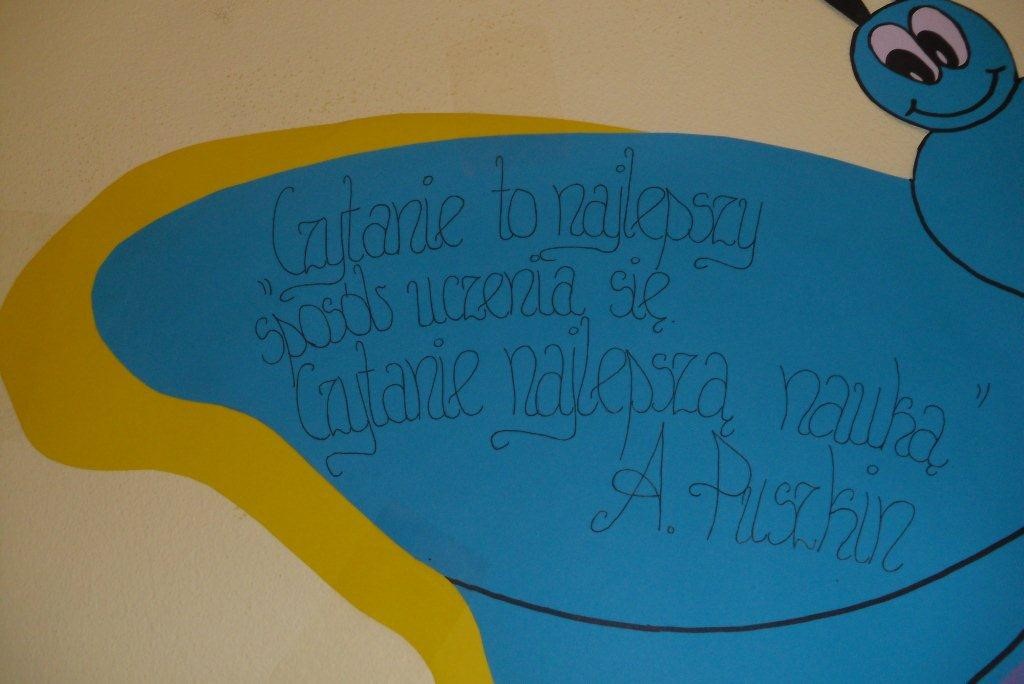 Czytanie to najlepszy
"sposób uczenia się.
Czytanie najlepszą nauką"
A. Puszkin